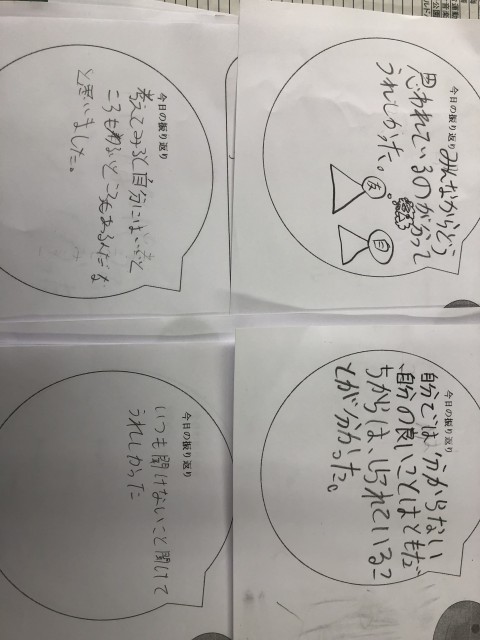 今日の振り返り
みんなからどう
思われているのが分って
うれしかった。
友
自
今日の振り返り
考えてみると自分にはいいと
ころもわるいところもあるんだな
と思いました。
今日の振り返り
自分では分からない
自分の良いことはともだ
ちからは、しられているこ
とが分かった。
今日の振り返り
いつも聞けないこと聞けて
うれしかった